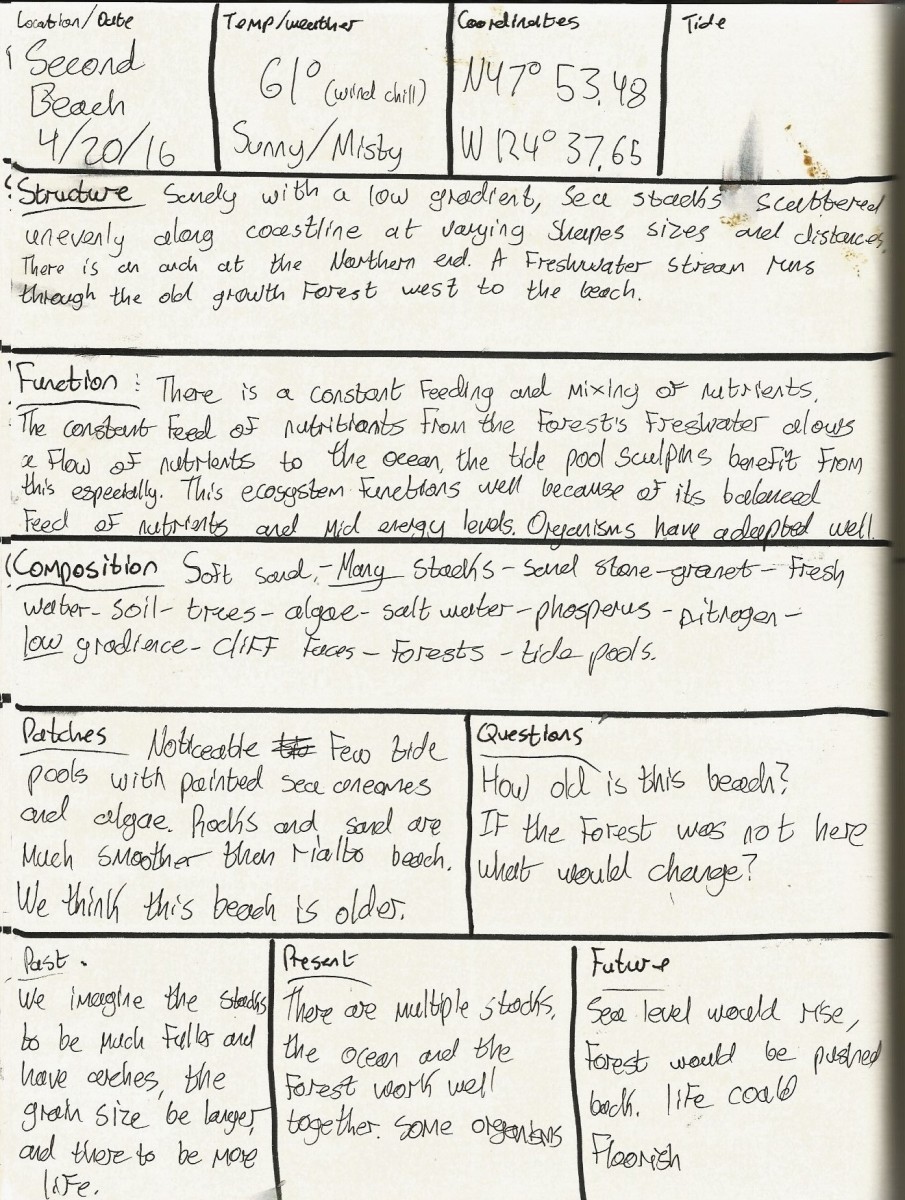 Location/Date
Second
Beach
4/20/16
Temp/weather
61° (wind chill)
Sunny/Misty
Coordinates
N47° 53.48
W 124° 37.65
Tide
Structure Sandy with a low gradient, Sea stacks scattered
unevenly along coastline at varying shapes sizes and distances.
There is an arch at the Northern end. A Freshwater stream runs
through the old growth Forest west to the beach.
Function : There is a constant Feeding and mixing of nutrients.
The constant Feed of nutritiants from the Forest's Freshwater alows
a Flow of nutrients to the ocean, the tide pool sculpins benefit From
this especially. This ecosystem functions well because of its balanced
Feed of nutrients and Mid energy levels. Organisms have adeapted well
Composition Soft sand, - Many Stacks - sand stone - granet - Fresh
water - soil - trees - algae - salt water - phosperus - nitrogen -
low gradience - cliff Faces - Forests - tide pools.
Patches Noticeable Few tide
pools with painted sea anemes
and algae. Rocks and sand are
Much smoother then rialto beach.
We think this beach is older.
Questions
How old is this beach?
IF the Forest was not here
what would change?
Past.
We imagine the stacks
to be much Fuller and
have arches, the
grain size be larger,
and there to be more
life.
Present
There are multiple stacks,
the ocean and the
Forest work well
together. some organisms
Future
Sea level would rise,
Forest would be pushed
back. life could
Floorish